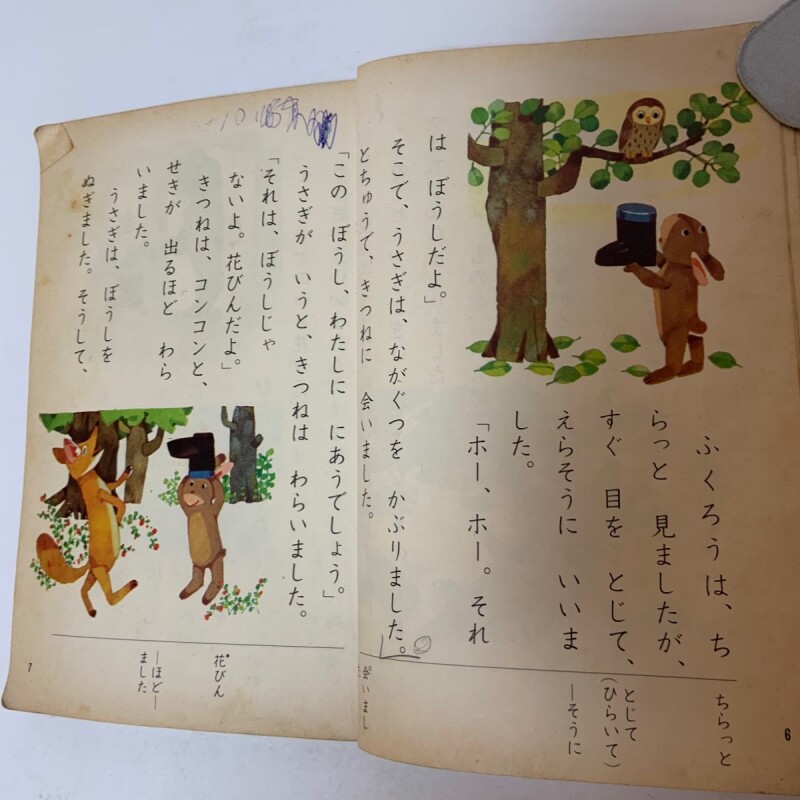 ふくろうは、ち
らっと 見ましたが、
すぐ 目を とじて、
えらそうに いいま
した。
「ホー、ホー。それ
は ぼうしだよ。」
そこで、うさぎは、ながぐつを かぶりました。
とちゅうで、きつねに 会いました。
ちらっと
とじて
(ひらいて)
―そうに
会いまし
6
「この ぼうし、わたしに にあうでしょう。」
うさぎが いうと、きつねは わらいました。
「それは、ぼうしじゃ
ないよ。花びんだよ。」
きつねは、コンコンと、
せきが 出るほど わら
いました。
うさぎは、ぼうしを
ぬぎました。そうして、
花びん
―ほど―
ました
7